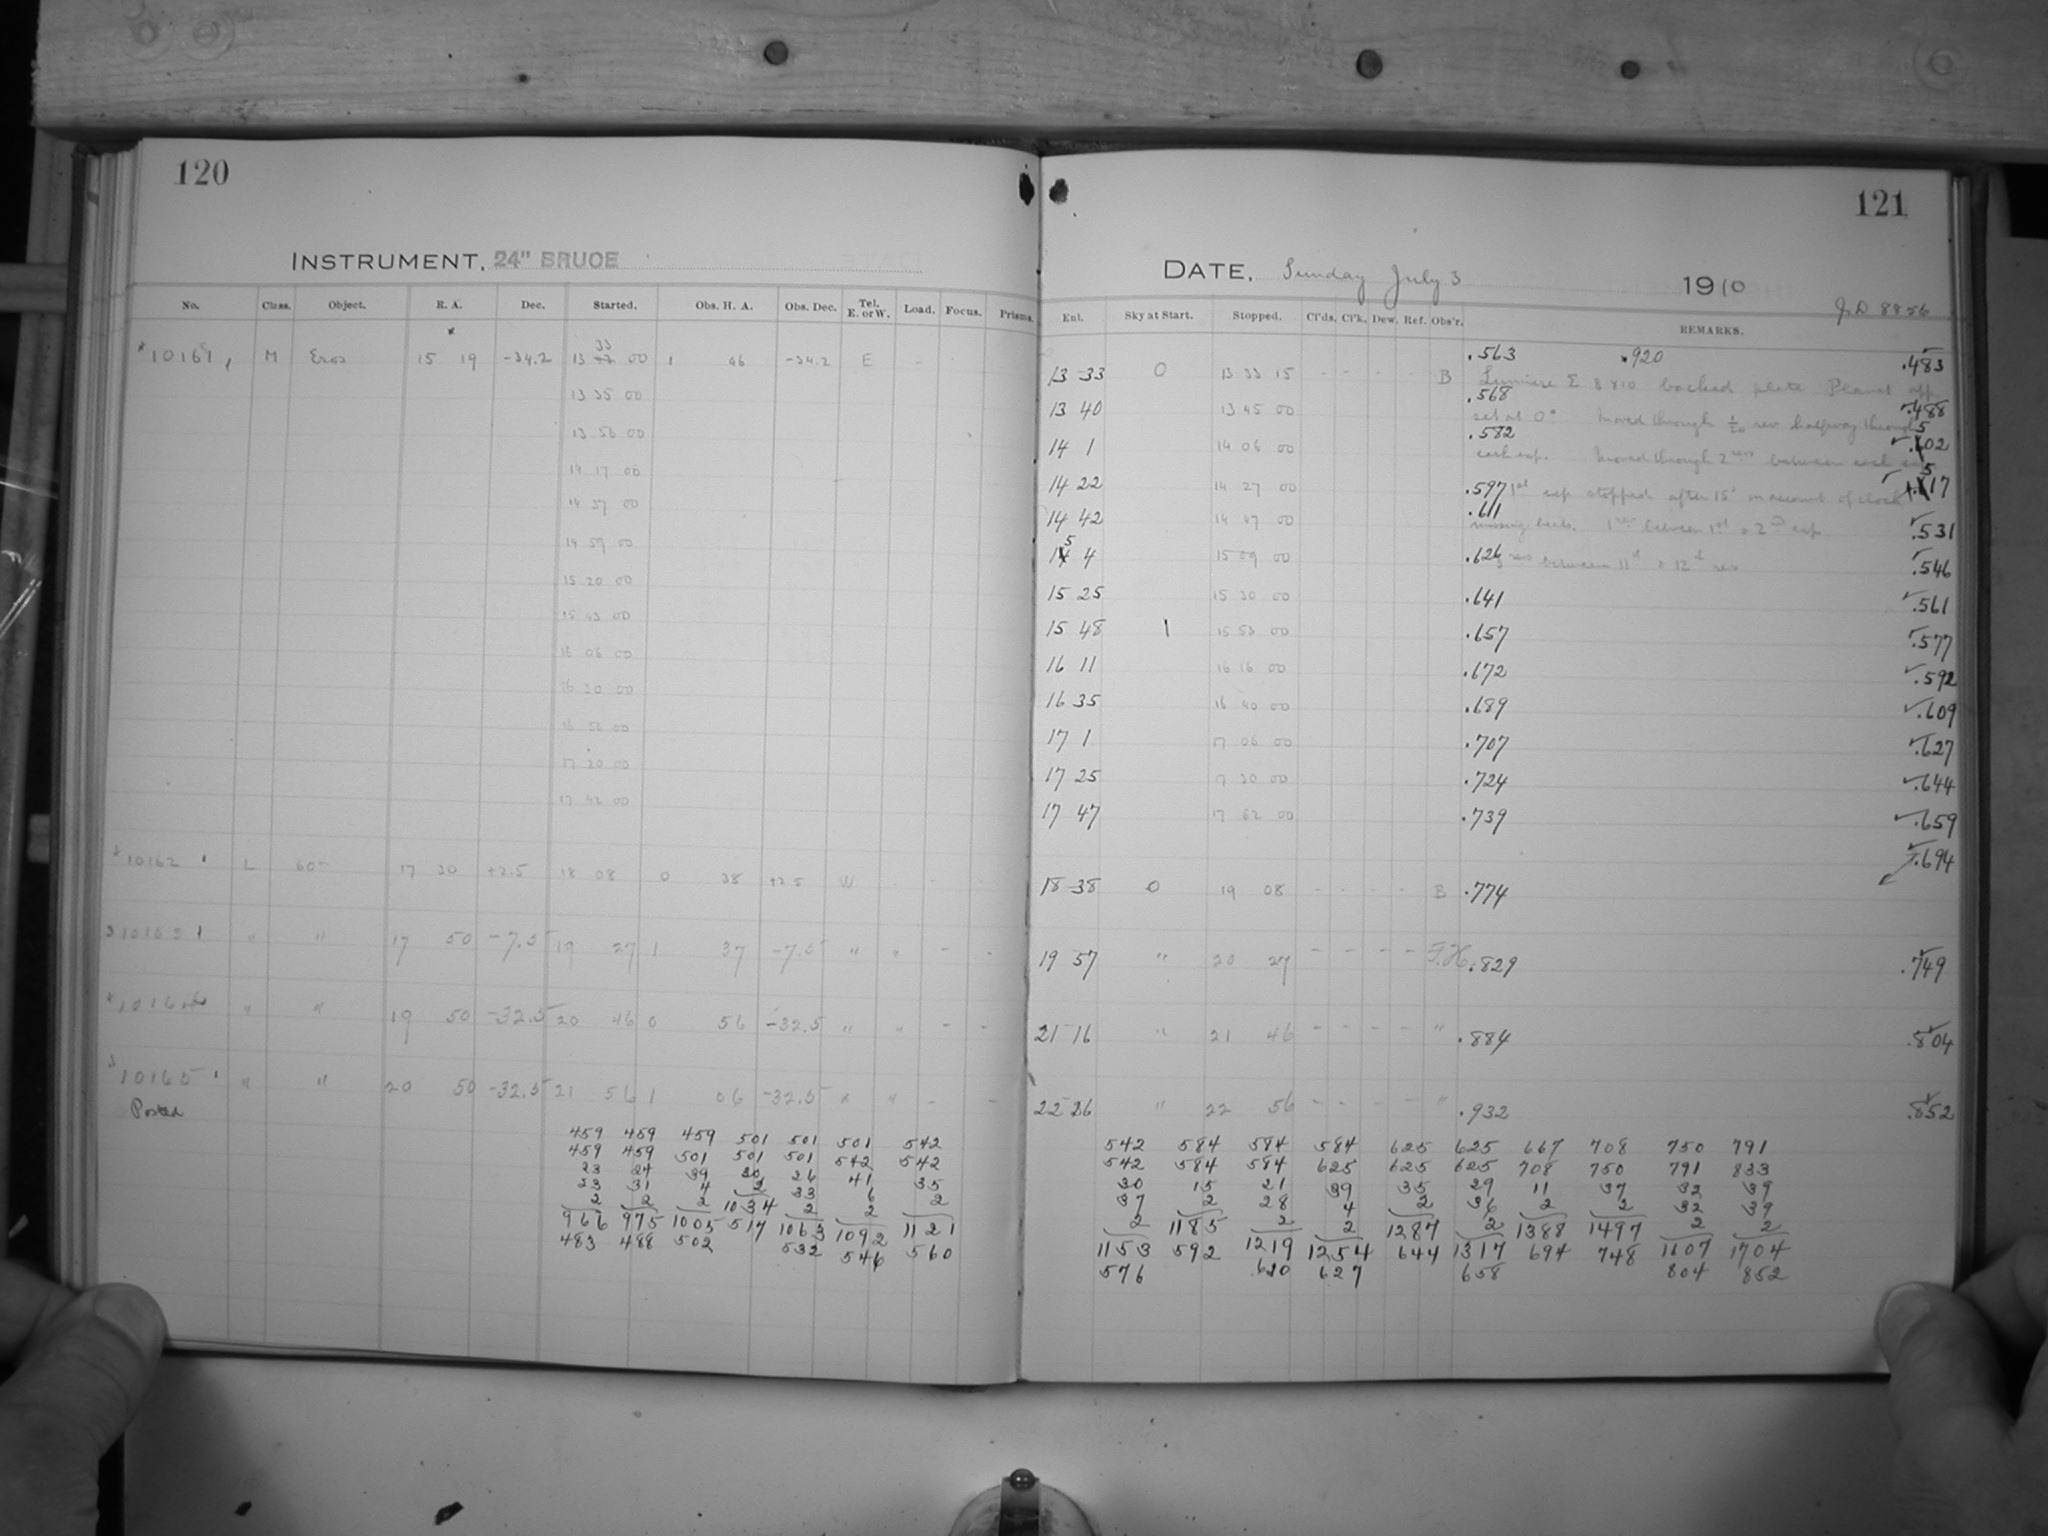 120
INSTRUMENT, 24" BRUCE
No. Class. Object. R. A. Dec. Started. Obs. H. A. Obs. Dec. Tel. E. or W. Load. Focus. Prisms.
10161 M Eros 15 19 -34.2 13 33 00 1 46 -34.2 E - -
13 35 00
13 56 00
14 17 00
14 37 00
14 59 00
15 20 00
15 43 00
16 06 00
16 30 00
16 56 00
17 20 00
17 42 00
10162 L 60m 17 30 +2.5 18 08 0 38 +2.5 W - - -
10163 " " 17 50 -7.5 19 27 1 37 -7.5 " " - -
10164 " " 19 50 -32.5 20 46 0 56 -32.5 " " - -
10165 " " 20 50 -32.5 21 56 1 06 -32.5 " " - -
Posted
459 459 459 501 501 501 542
459 459 501 501 501 542 542
23 24 39 30 26 41 35
23 31 4 2 33 6 2
2 2 2 1034 2 2
966 975 1005 517 1063 1092 1121
483 488 502 532 546 560
121
DATE, Sunday July 3 1910
J.D 8856
Enl. Sky at Start. Stopped. Cl'ds. Cl'k. Dew. Ref. Obs'r. REMARKS.
13 33 0 13 33 15 - - - - B .563 .920 .483
Lumiere Σ 8 x 10 backed plate Planet app
13 40 13 45 00 .568 .488
set at 0° Moved through 1/20 rev halfway through
14 1 14 06 00 .582 .502
each exp. Moved through 2 revs between each exp
14 22 14 27 00 .597 1st exp stopped after 15s on account of clock .517
14 42 14 47 00 .611 missing beats. 1 rev between 1st & 2d exp .531
15 4 15 09 00 .626 revs between 11th & 12th .546
15 25 15 30 00 .641 .561
15 48 1 15 53 00 .657 .577
16 11 16 16 00 .672 .592
16 35 16 40 00 .689 .609
17 1 17 06 00 .707 .627
17 25 17 30 00 .724 .644
17 47 17 52 00 .739 .659
.694
18 38 0 19 08 - - - - B .774
19 57 " 20 27 - - - - F.H. .829 .749
21 16 " 21 46 - - - - " .884 .804
22 26 " 22 56 - - - - " .932 .852
542 584 584 584 625 625 667 708 750 791
542 584 584 625 625 625 708 750 791 833
30 15 21 39 35 29 11 37 32 39
37 2 28 4 2 36 2 2 32 39
2 1185 2 2 1287 2 1388 1497 2 2
1153 592 1219 1254 644 1317 694 748 1607 1704
576 610 627 658 804 852